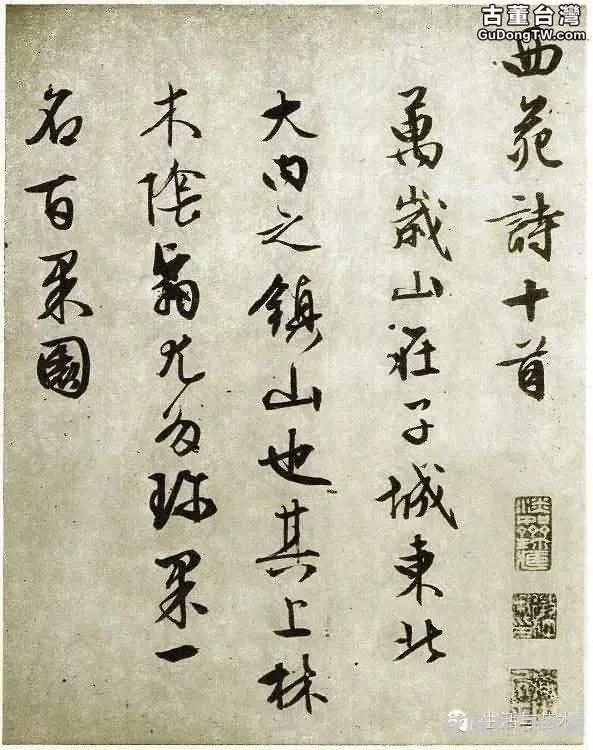 古董台灣
GuDongTW.com
西苑詩十首
萬歲山在子城東北
大内之鎮山也其上林
木陰翳尤多珍果一
名百果園
生活与艺术